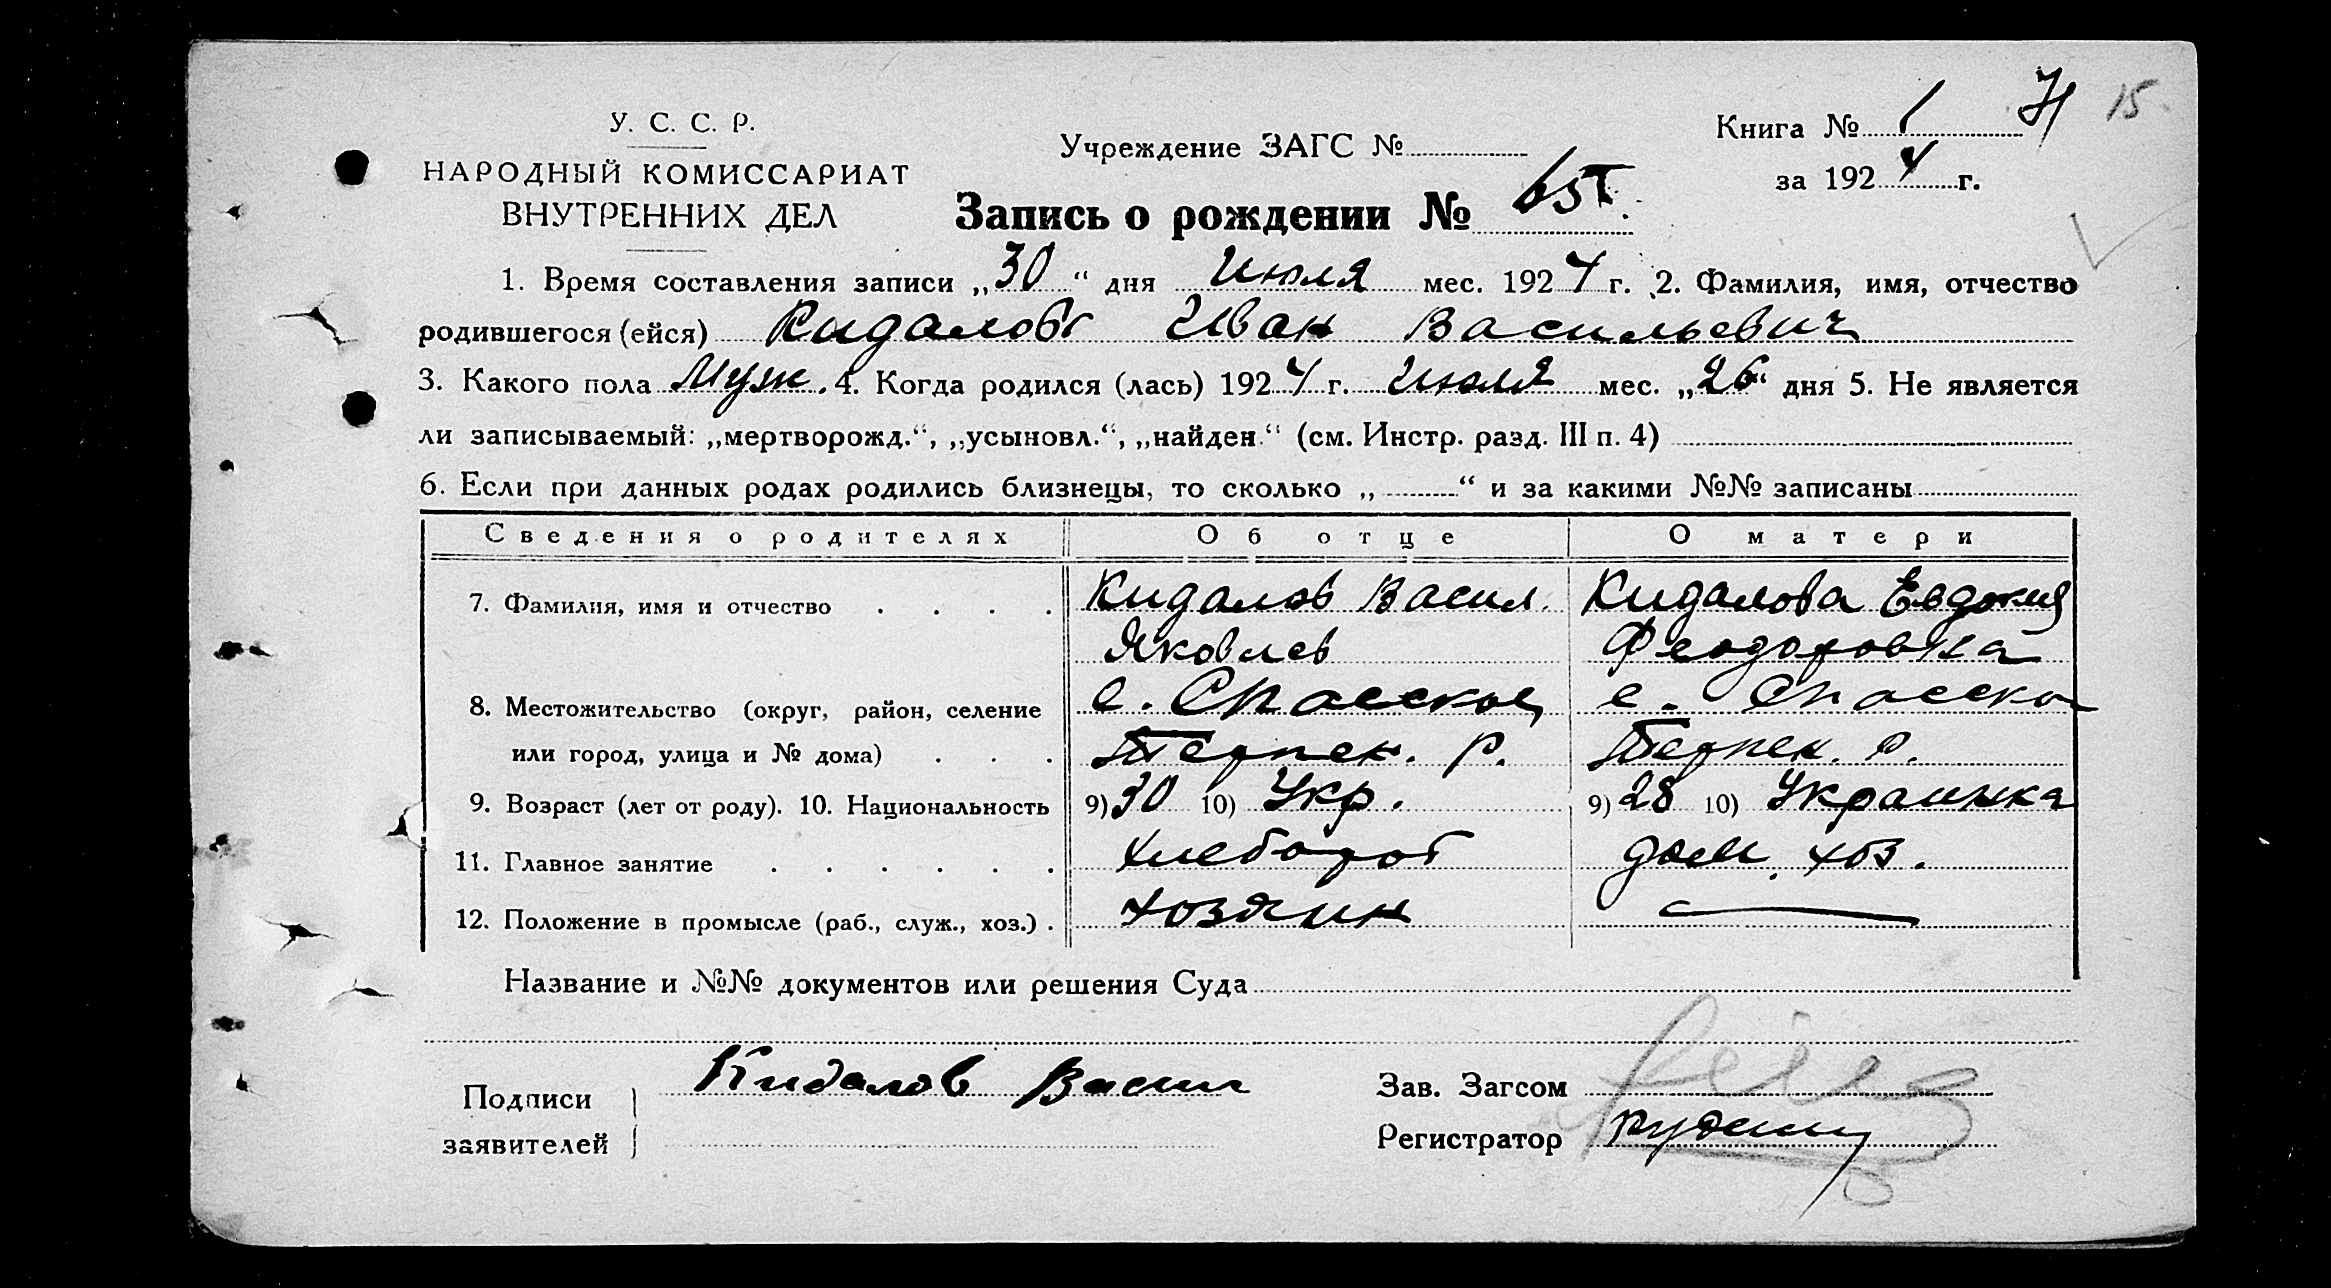 У. С. С. Р.
НАРОДНЫЙ КОМИССАРИАТ
ВНУТРЕННИХ ДЕЛ
Учреждение ЗАГС №
Книга № 1
15
за 1924 г.
Запись о рождении №
1. Время составления записи „30“ дня Июля мес. 1924 г. 2. Фамилия, имя, отчество
родившегося (ейся) Кидалов Иван Васильевич
3. Какого пола Муж. 4. Когда родился (лась) 1924 г. Июля мес. „26“ дня 5. Не является
ли записываемый: „мертворожд.“, „усыновл.“, „найден.“ (см. Инстр. разд. III п. 4)
6. Если при данных родах родились близнецы, то сколько „ “ и за какими №№ записаны
Сведения о родителях Об отце О матери
7. Фамилия, имя и отчество . . . . Кидалов Васил. Кидалова Евдокия
Яковлев Феодоровна
8. Местожительство (округ, район, селение с. Спасское с. Спасско
или город, улица и № дома) . . . Терпен. Р. Терпен. Р.
9. Возраст (лет от роду). 10. Национальность 9) 30 10) Укр. 9) 28 10) Украинка
11. Главное занятие . . . . . . Хлебороб дом. хоз.
12. Положение в промысле (раб., служ., хоз.) . хозяин —
Название и №№ документов или решения Суда
Подписи заявителей Кидалов Васил
Зав. Загсом
Регистратор